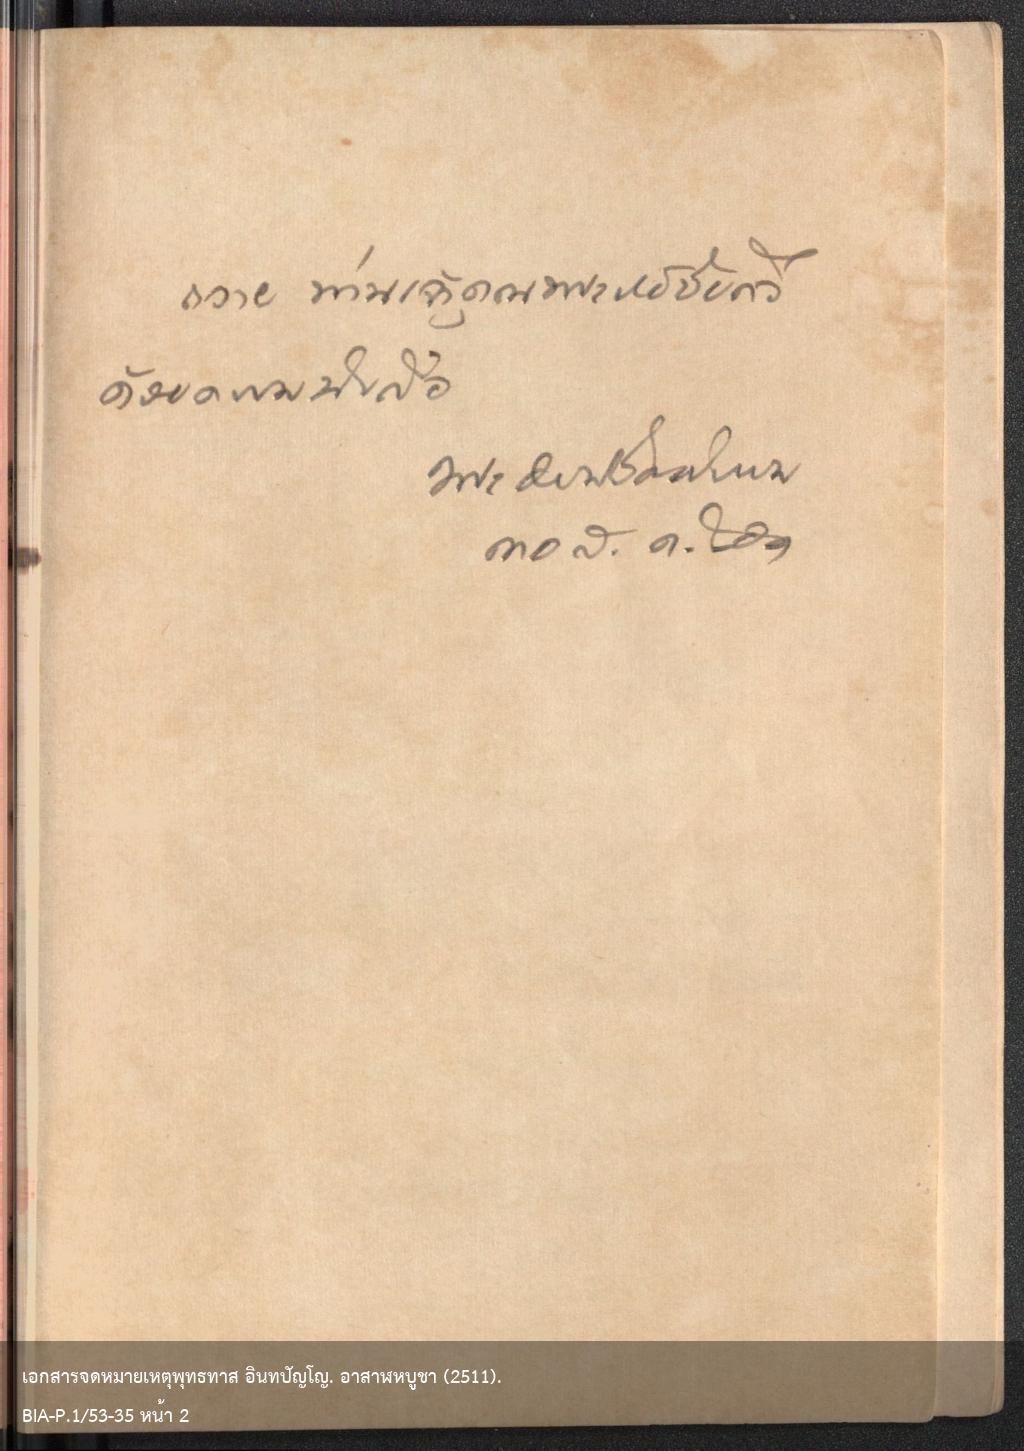 ถวาย ท่านเจ้าคุณพระ
ด้วยความนับถือ
พระ
๓๐ ส. ค. ๒๕๑๑
เอกสารจดหมายเหตุพุทธทาส อินทปัญโญ. อาสาฬหบูชา (2511).
BIA-P.1/53-35 หน้า 2